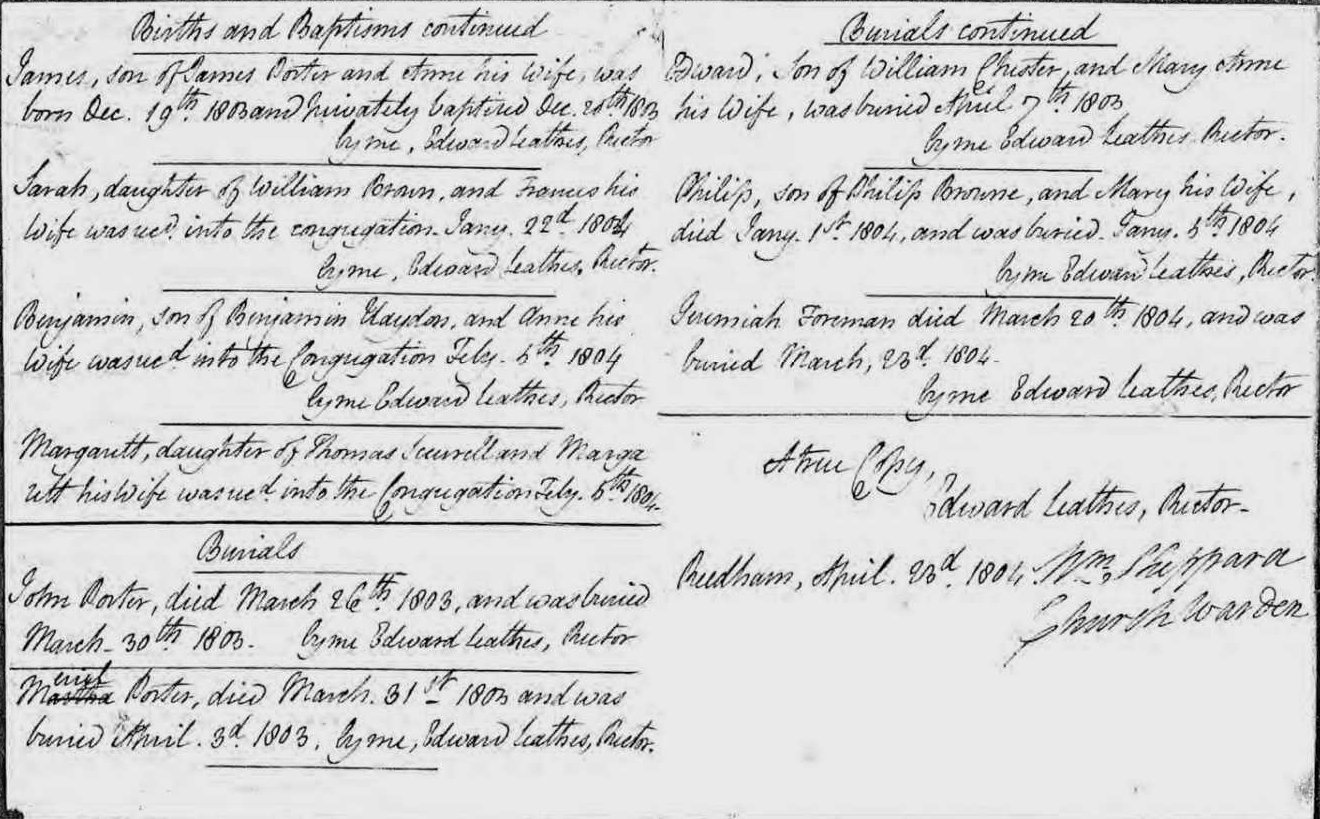 Births and Baptisms continued
James, son of James Porter and Anne his Wife, was
born Dec. 19th 1803 and privately baptized Dec. 20th 1803
by me, Edward Leathes, Rector
Sarah, daughter of William Brown, and Frances his
Wife was recd. into the congregation Jany. 22d 1804
by me, Edward Leathes, Rector.
Benjamin, son of Benjamin Haydon, and Anne his
Wife was recd into the Congregation Feby. 5th 1804
by me Edward Leathes, Rector
Margarett, daughter of Thomas and Marga
rett his Wife was recd into the Congregation Feby. 5th 1804
Burials
John Porter, died March 26th 1803, and was buried
March 30th 1803. by me Edward Leathes, Rector
Porter, died March. 31st 1803 and was
buried April. 3d 1803, by me, Edward Leathes, Rector.
Burials continued
Edward, Son of William Chester, and Mary Anne
his Wife, was buried April 7th 1803
by me Edward Leathes Rector.
Philip, son of Philip Browne, and Mary his Wife,
died Jany. 1st 1804, and was buried Jany. 5th 1804
by me Edward Leathes, Rector.
Jeremiah Foreman died March 20th 1804, and was
buried March, 23d 1804.
by me Edward Leathes, Rector
A true Copy,
Edward Leathes, Rector-
Reedham, April. 23d 1804 Wm. Sheppard
Church Warden